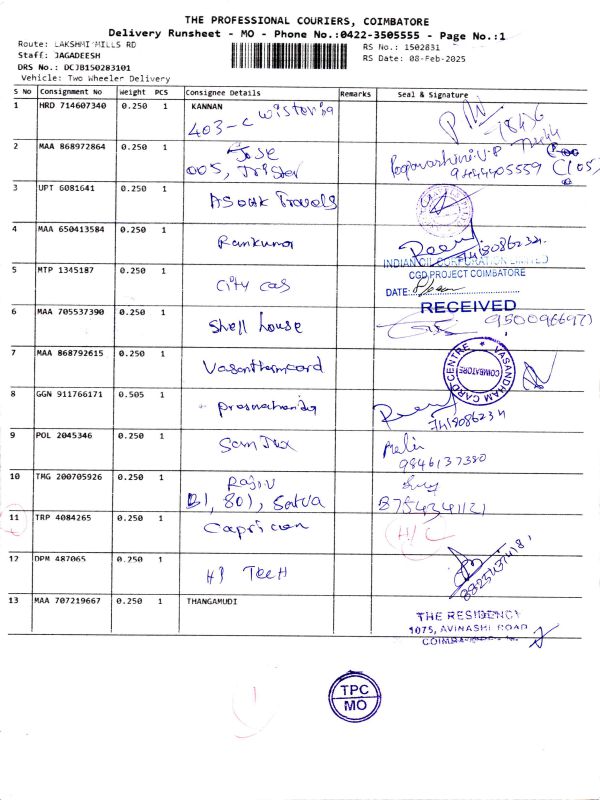 THE PROFESSIONAL COURIERS, COIMBATORE
Delivery Runsheet - MO - Phone No.:0422-3505555 - Page No.:1
Route: LAKSHMI MILLS RD
Staff: JAGADEESH
DRS No.: DCJB150283101
Vehicle: Two Wheeler Delivery
RS No.: 1502831
RS Date: 08-Feb-2025
S No Consignment No Weight PCS Consignee Details Remarks Seal & Signature
1 HRD 714607340 0.250 1 KANNAN
403-C
2 MAA 868972864 0.250 1 Jose
005,
9444405559
3 UPT 6081641 0.250 1 ASOAK Travels
4 MAA 650413584 0.250 1 Ramkumar
7418086234
INDIAN OIL CORPORATION LIMITED
5 MTP 1345187 0.250 1 City Gas
CGD PROJECT COIMBATORE
DATE:
RECEIVED
6 MAA 705537390 0.250 1 Shell house
7 MAA 868792615 0.250 1 Vasantham card
VASANDHAM CARD CENTRE
COIMBATORE
8 GGN 911766171 0.505 1
7418086234
9 POL 2045346 0.250 1
9846137380
10 TMG 200705926 0.250 1 Rajiv
B1, 801, Satva
8754341121
11 TRP 4084265 0.250 1 Capricon
H/C
12 DPM 487065 0.250 1 HI Tech
13 MAA 707219667 0.250 1 THANGAMUDI
THE RESIDENCY
1075, AVINASHI ROAD
TPC
MO